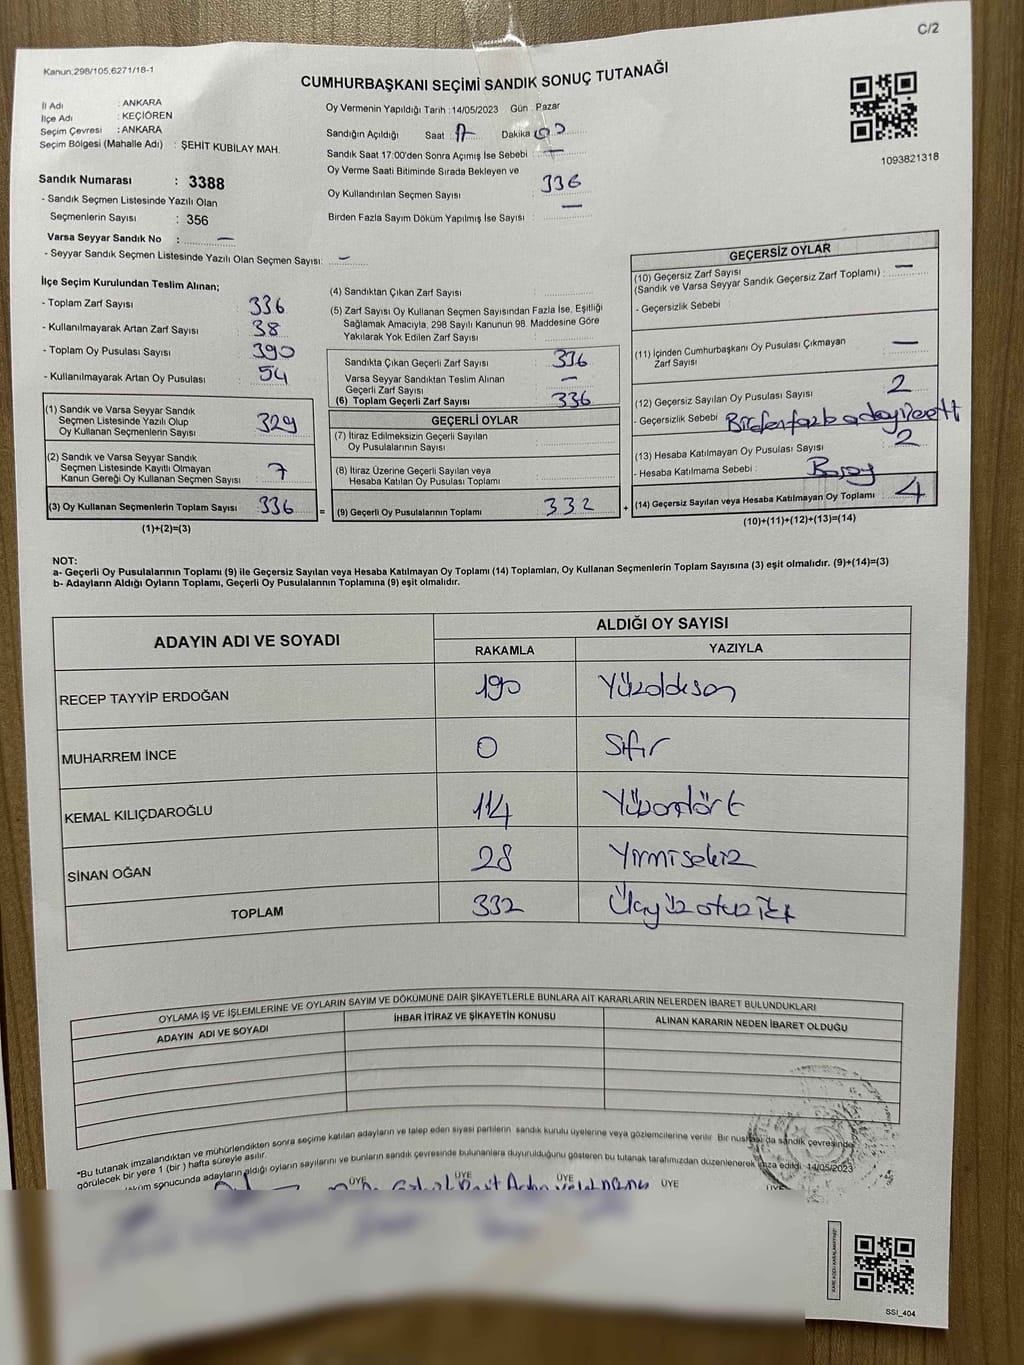 C/2
Kanun,298/105,6271/18-1
CUMHURBAŞKANI SEÇİMİ SANDIK SONUÇ TUTANAĞI
İl Adı : ANKARA
İlçe Adı : KEÇİÖREN
Seçim Çevresi : ANKARA
Seçim Bölgesi (Mahalle Adı) : ŞEHİT KUBİLAY MAH.
Sandık Numarası : 3388
- Sandık Seçmen Listesinde Yazılı Olan
Seçmenlerin Sayısı : 356
Varsa Seyyar Sandık No : —
- Seyyar Sandık Seçmen Listesinde Yazılı Olan Seçmen Sayısı: —
Oy Vermenin Yapıldığı Tarih : 14/05/2023 Gün Pazar
Sandığın Açıldığı Saat 17 Dakika 00
Sandık Saat 17:00'den Sonra Açımış İse Sebebi : —
Oy Verme Saati Bitiminde Sırada Bekleyen ve
Oy Kullandırılan Seçmen Sayısı 336
Birden Fazla Sayım Döküm Yapılmış İse Sayısı : —
1093821318
İlçe Seçim Kurulundan Teslim Alınan;
- Toplam Zarf Sayısı 336
- Kullanılmayarak Artan Zarf Sayısı 38
- Toplam Oy Pusulası Sayısı 390
- Kullanılmayarak Artan Oy Pusulası 54
(1) Sandık ve Varsa Seyyar Sandık
Seçmen Listesinde Yazılı Olup
Oy Kullanan Seçmenlerin Sayısı 329
(2) Sandık ve Varsa Seyyar Sandık
Seçmen Listesinde Kayıtlı Olmayan
Kanun Gereği Oy Kullanan Seçmen Sayısı : 7
(3) Oy Kullanan Seçmenlerin Toplam Sayısı 336 =
(1)+(2)=(3)
(4) Sandıktan Çıkan Zarf Sayısı :
(5) Zarf Sayısı Oy Kullanan Seçmen Sayısından Fazla İse, Eşitliği
Sağlamak Amacıyla, 298 Sayılı Kanunun 98. Maddesine Göre
Yakılarak Yok Edilen Zarf Sayısı :
Sandıkta Çıkan Geçerli Zarf Sayısı 336
Varsa Seyyar Sandıktan Teslim Alınan
Geçerli Zarf Sayısı —
(6) Toplam Geçerli Zarf Sayısı 336
GEÇERLİ OYLAR
(7) İtiraz Edilmeksizin Geçerli Sayılan
Oy Pusulalarının Sayısı
(8) İtiraz Üzerine Geçerli Sayılan veya
Hesaba Katılan Oy Pusulası Toplamı
(9) Geçerli Oy Pusulalarının Toplamı : 332 +
GEÇERSİZ OYLAR
(10) Geçersiz Zarf Sayısı
(Sandık ve Varsa Seyyar Sandık Geçersiz Zarf Toplamı) : —
- Geçersizlik Sebebi :
(11) İçinden Cumhurbaşkanı Oy Pusulası Çıkmayan
Zarf Sayısı —
(12) Geçersiz Sayılan Oy Pusulası Sayısı 2
- Geçersizlik Sebebi :
(13) Hesaba Katılmayan Oy Pusulası Sayısı 2
- Hesaba Katılmama Sebebi :
(14) Geçersiz Sayılan veya Hesaba Katılmayan Oy Toplamı : 4
(10)+(11)+(12)+(13)=(14)
NOT:
a- Geçerli Oy Pusulalarının Toplamı (9) ile Geçersiz Sayılan veya Hesaba Katılmayan Oy Toplamı (14) Toplamları, Oy Kullanan Seçmenlerin Toplam Sayısına (3) eşit olmalıdır. (9)+(14)=(3)
b- Adayların Aldığı Oyların Toplamı, Geçerli Oy Pusulalarının Toplamına (9) eşit olmalıdır.
ADAYIN ADI VE SOYADI ALDIĞI OY SAYISI
RAKAMLA YAZIYLA
RECEP TAYYİP ERDOĞAN 190 Yüzdoksan
MUHARREM İNCE 0 Sıfır
KEMAL KILIÇDAROĞLU 114 Yüzondört
SİNAN OĞAN 28 Yirmisekiz
TOPLAM 332 Üçyüzotuziki
OYLAMA İŞ VE İŞLEMLERİNE VE OYLARIN SAYIM VE DÖKÜMÜNE DAİR ŞİKAYETLERLE BUNLARA AİT KARARLARIN NELERDEN İBARET BULUNDUKLARI
ADAYIN ADI VE SOYADI İHBAR İTİRAZ VE ŞİKAYETİN KONUSU ALINAN KARARIN NEDEN İBARET OLDUĞU
*Bu tutanak imzalandıktan ve mühürlendikten sonra seçime katılan adayların ve talep eden siyasi partilerin sandık kurulu üyelerine veya gözlemcilerine verilir. Bir nüshası da sandık çevresinde
görülecek bir yere 1 (bir) hafta süreyle asılır.
döküm sonucunda adayların aldığı oyların sayılarını ve bunların sandık çevresinde bulunanlara duyurulduğunu gösteren bu tutanak tarafımızdan düzenlenerek imza edildi. 14/05/2023
ÜYE ÜYE ÜYE ÜYE ÜYE
SSI_404